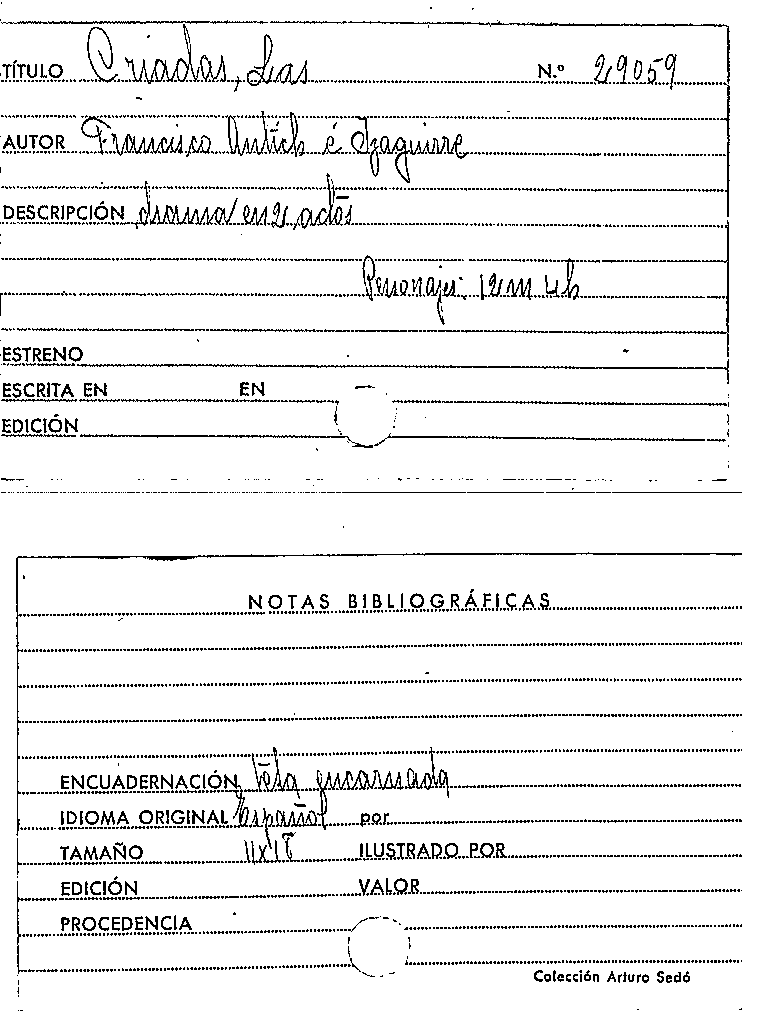 TÍTULO Criadas, Las N.º 29059
AUTOR Francisco Antich é Izaguirre
DESCRIPCIÓN drama en 2 actos
Personajes: 12 m 4 h
ESTRENO
ESCRITA EN EN
EDICIÓN
NOTAS BIBLIOGRÁFICAS
ENCUADERNACIÓN tela encarnada
IDIOMA ORIGINAL Español por
TAMAÑO 11x18 ILUSTRADO POR
EDICIÓN VALOR
PROCEDENCIA
Colección Arturo Sedó